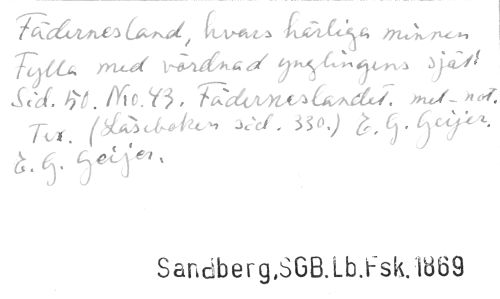 Fädernesland, hvars härliga minnen
Fylla med vördnad ynglingens själ!
Sid. 50. No. 43. Fäderneslandet. mel-not.
Tex. (Läseboken sid. 330.) E. G. Geijer.
E. G. Geijer.
Sandberg,SGB.Lb.Fsk.1869